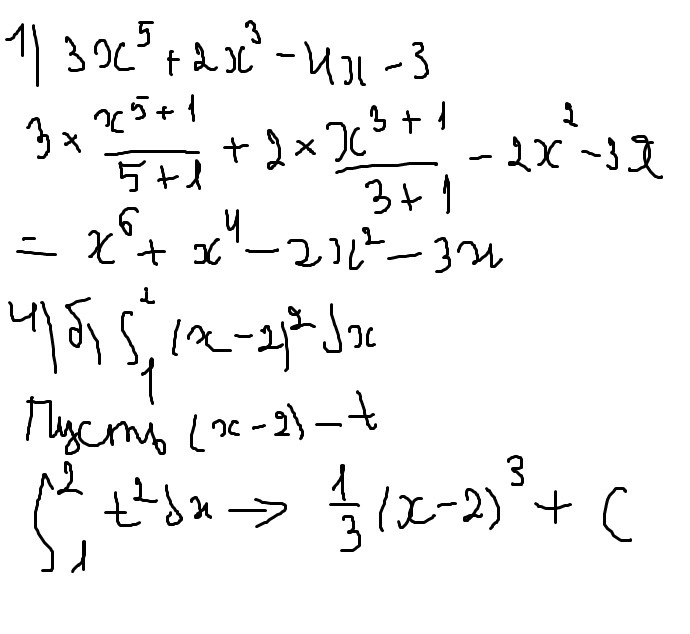 1) 3x⁵ + 2x³ - 4x - 3
3 × x⁵⁺¹/5+1 + 2 × x³⁺¹/3+1 - 2x² - 3x
= x⁶ + x⁴ - 2x² - 3x
4) б) ∫₁² (x-2)² dx
Пусть (x-2) - t
∫₁² t² dx → 1/3 (x-2)³ + C